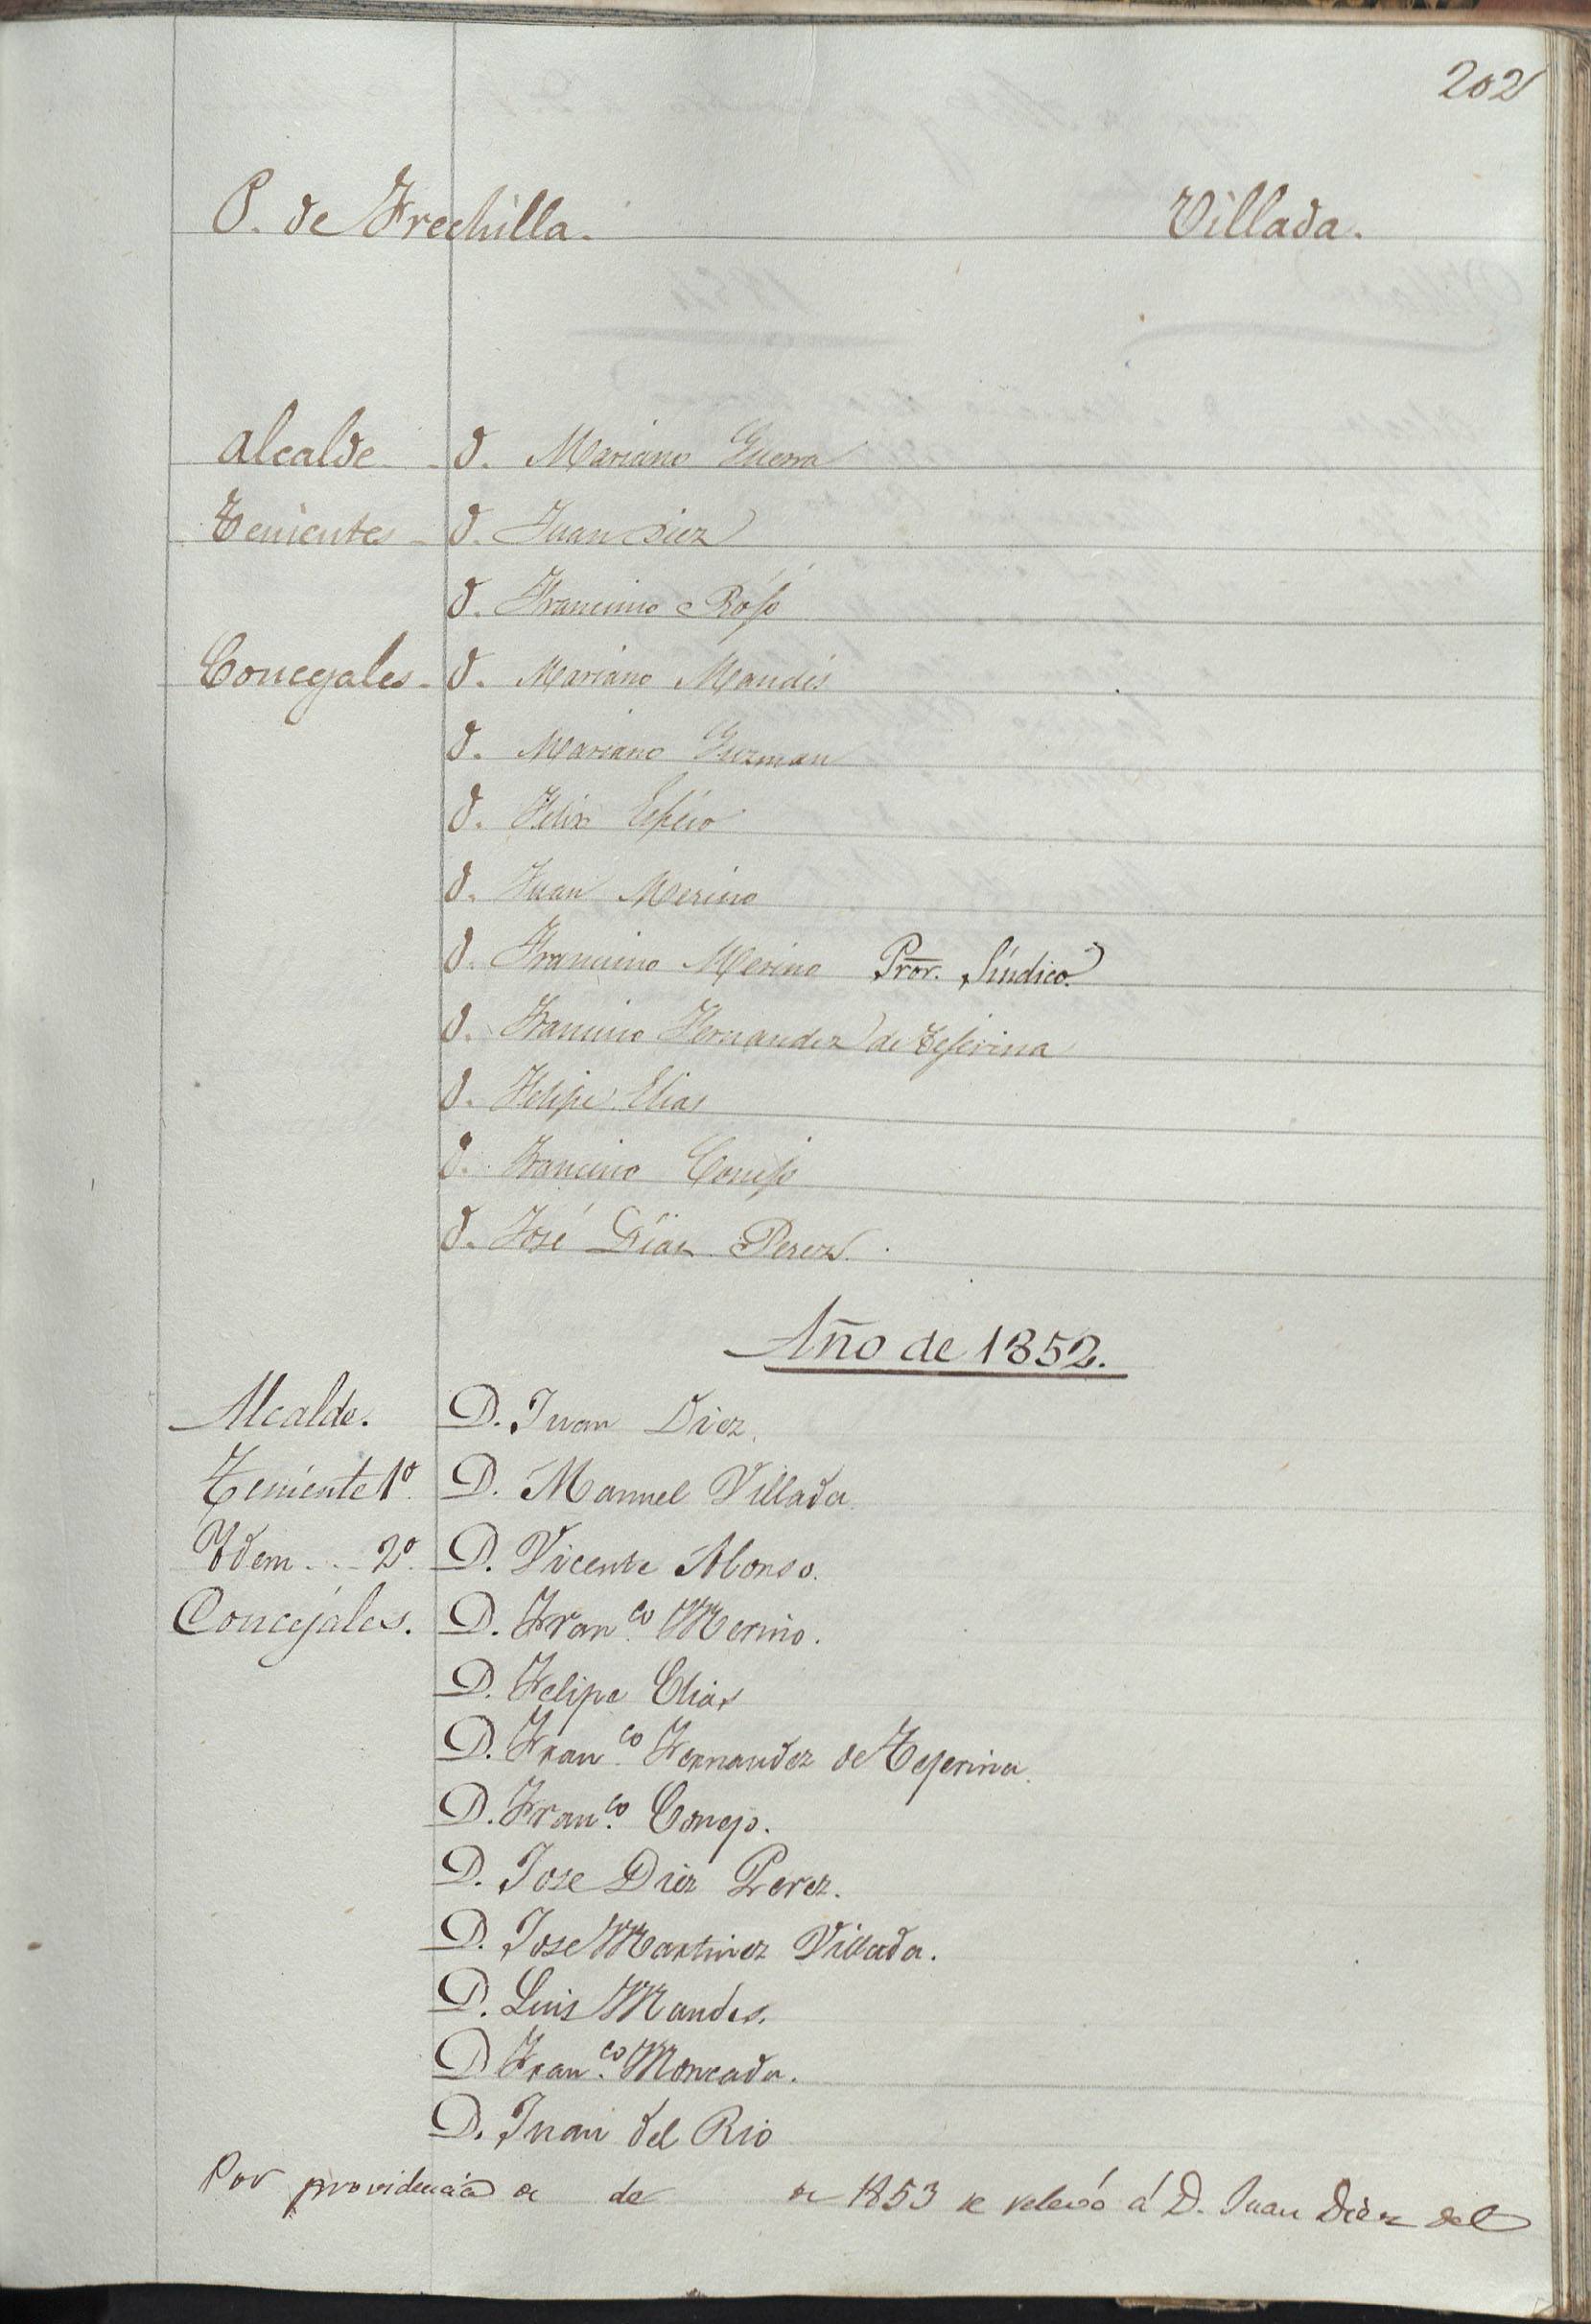 202
P. de Frechilla. Villada.
Alcalde - D. Mariano Guerra
Tenientes - D. Juan Diez
D. Francisco Rojo
Concejales - D. Mariano Mandis
D. Mariano Guzman
D. Felix Espejo
D. Juan Merino
D. Francisco Merino Pror. Síndico.
D. Francisco Fernandez de Tejerina
D. Felipe Elias
D. Francisco Conejo
D. José Díaz Perez.
Año de 1852.
Alcalde. D. Juan Diez.
Teniente 1º. D. Manuel Villada.
Ydem... 2º. D. Vicente Alonso.
Concejales. D. Franco. Merino.
D. Felipe Elias
D. Franco. Fernandez de Tejerina.
D. Franco. Conejo.
D. Jose Diez Perez.
D. Jose Martinez Villada.
D. Luis Mandis.
D Franco. Moncada.
D. Juan del Rio
Por providencia de de de 1853 se relevó á D. Juan Diez del